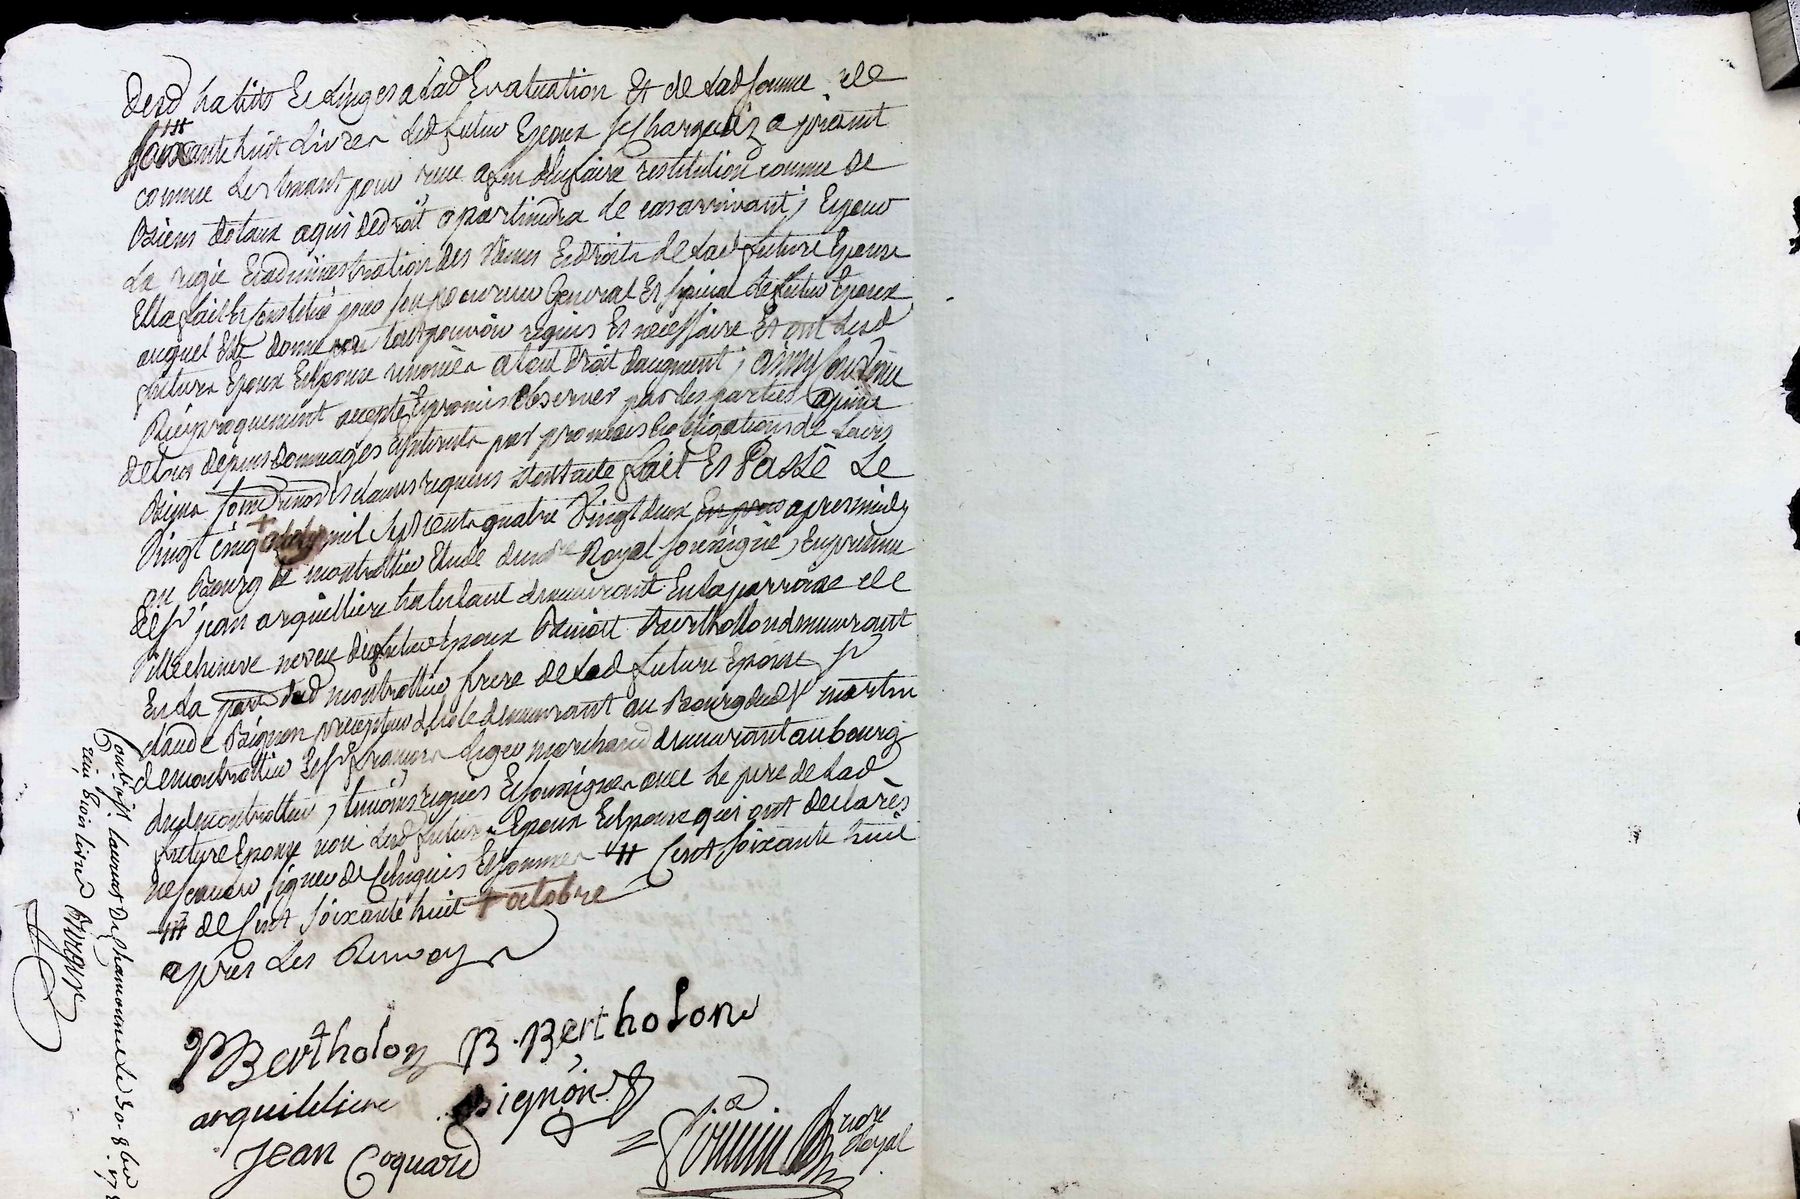 desd habits et linges a lad Evaluation et de lad somme de
soixante huit livres led futur Epoux se charge dez a present
comme les tenant pour reçue afin d'en faire restitution comme de
Biens dotaux a qui de droit apartiendra le cas arrivant, Et pour
La regie Et administration des Biens Et droits de lad future Epouse
Elle a fait Et constitué pour son procureur General Et special led futur Epoux
auquel Elle donne tout pouvoir requis Et necessaire Et ont lesd
futurs Epoux Et Epouse renoncés a tout droit daugment, ainsy
Reciproquement accepté Et promis observer par les parties a peine
de tous depens dommages Et interets par promesses Et obligations de leurs
Biens soum renon Et clauses requises dont acte fait Et Passé Le
Vingt cinq mil sept cents quatre Vingt deux apres midy
au Bourg de montrottier Etude du nore Royal soussigné, En presence
de sr jean arquilliere habitant demeurant En la parroisse de
Villecheneve neveu dud futur Epoux Benoitt Berthollon demeurant
En la parr dud montrottier frere de lad future Epouse sr
claude Bignon precepteur d'Ecole demeurant au Bourg dud st martin
de montrottier Et sr francois Liger marchand demeurant au bourg
dud montrottier, temoins requis Et soussignés avec le pere de lad
future Epouse non lesd futurs Epoux Et Epouse qui ont declarés
ne scavoir signer de ce Enquis Et sommés # Cent soixante huit
# de Cent soixante huit + octobre
apres Les Renvoys
P Bertholon B. Bertholon
arquilliere Bignon
Jean Coquard
nore Royal
Laurent de Chamousset Le 30. 8bre